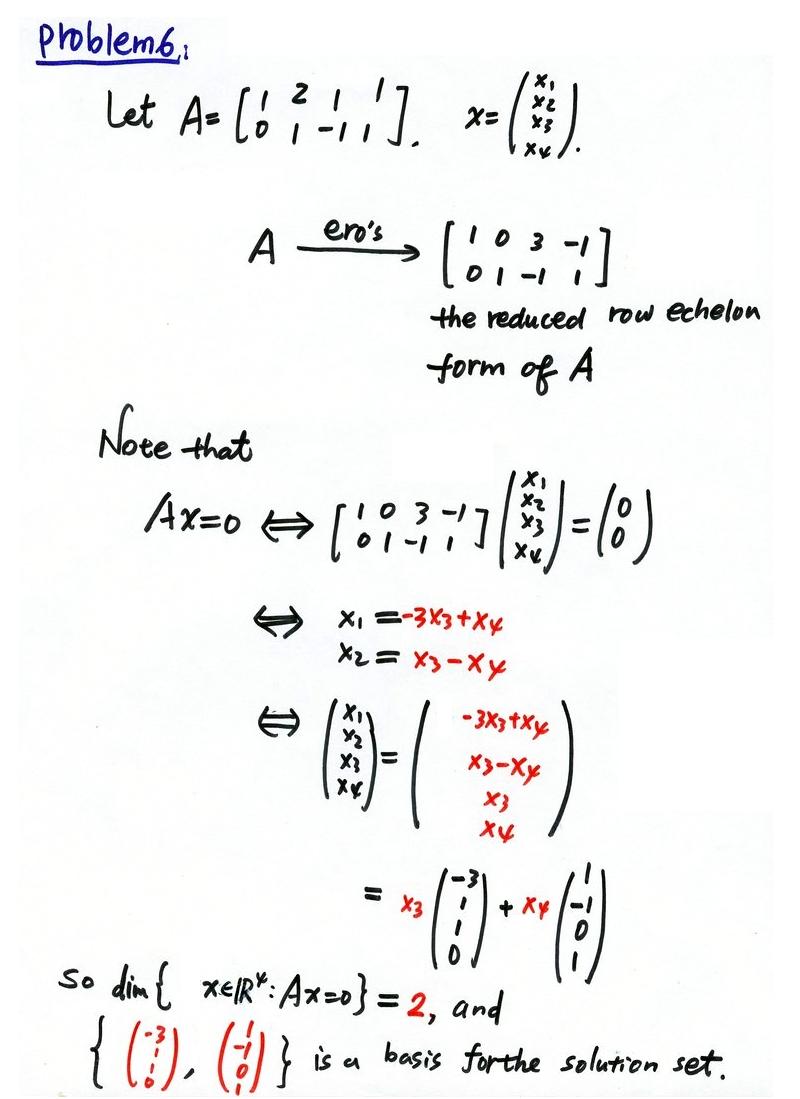 problem6.
Let A= [ 1 2 1 1 ; 0 1 -1 1 ]. x= ( x1 x2 x3 x4 ).
A —ero's→ [ 1 0 3 -1 ; 0 1 -1 1 ]
the reduced row echelon
form of A
Note that
Ax=0 ⟺ [ 1 0 3 -1 ; 0 1 -1 1 ] ( x1 x2 x3 x4 ) = ( 0 0 )
⟺ x1 = -3x3+x4
x2 = x3-x4
⟺ ( x1 x2 x3 x4 ) = ( -3x3+x4 ; x3-x4 ; x3 ; x4 )
= x3 ( -3 1 1 0 ) + x4 ( 1 -1 0 1 )
So dim{ x∈ℝ⁴: Ax=0 } = 2, and
{ ( -3 1 1 0 ), ( 1 -1 0 1 ) } is a basis for the solution set.